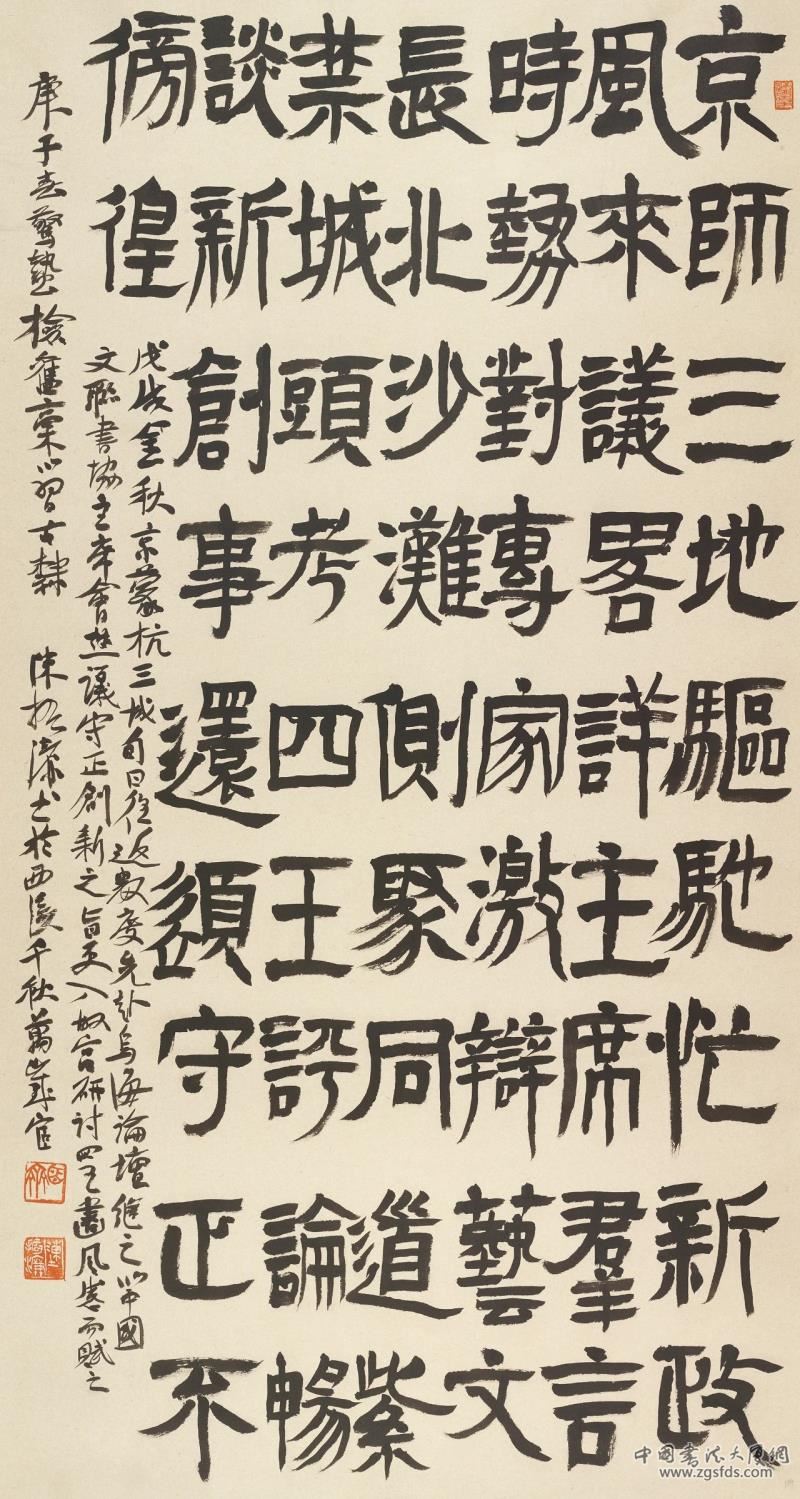 京師三地驅馳忙新政
風來議畧詳主席羣言
時勢對專家激辯藝文
長北沙灘側聚同道紫
禁城頭考四王評論暢
談新創事還須守正不
徬徨
戊戌金秋京蒙杭三城旬日往返數度先赴烏海論壇繼之以中國
文聯書協主席會熱議守正創新之旨更入故宮研討四王畫風而賦之
庚子春驚蟄檢舊稾以習古隸 陳振濂書於西溪千秋萬歲宧
中國书法大厦網
www.zgsfds.com